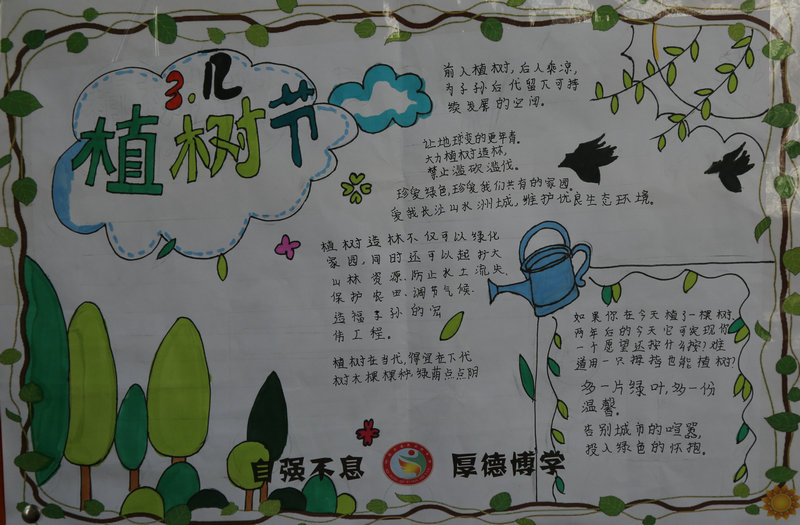 3.12
植树节
前人植树，后人乘凉，
为子孙后代留下可持
续发展的空间。
让地球变的更年青。
大力植树造林，
禁止滥砍滥伐。
珍爱绿色，珍爱我们共有的家园。
爱我长江山水洲城，维护优良生态环境。
植树造林不仅可以绿化
家园，同时还可以起扩大
山林资源、防止水土流失、
保护农田、调节气候、
造福子孙的宏
伟工程。
植树在当代，得宜在下代
树木棵棵种，绿荫点点阴
如果你在今天植了一棵树，
两年后的今天它可实现你
一个愿望还按什么按？难
道用一只拇指也能植树？
多一片绿叶，多一份
温馨。
告别城市的喧嚣，
投入绿色的怀抱。
自强不息 厚德博学